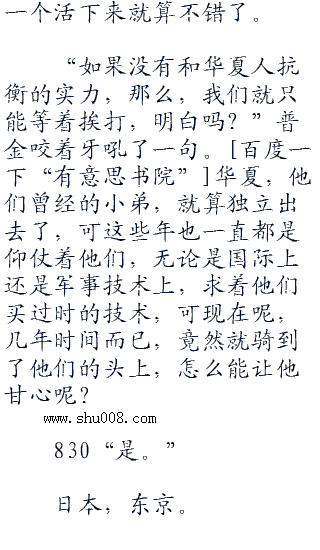 一个活下来就算不错了。
“如果没有和华夏人抗
衡的实力，那么，我们就只
能等着挨打，明白吗？”普
金咬着牙吼了一句。[百度一
下“有意思书院”]华夏，他
们曾经的小弟，就算独立出
去了，可这些年也一直都是
仰仗着他们，无论是国际上
还是军事技术上，求着他们
买过时的技术，可现在呢，
几年时间而已，竟然就骑到
了他们的头上，怎么能让他
甘心呢？
www.shu008.com
830“是。”
日本，东京。